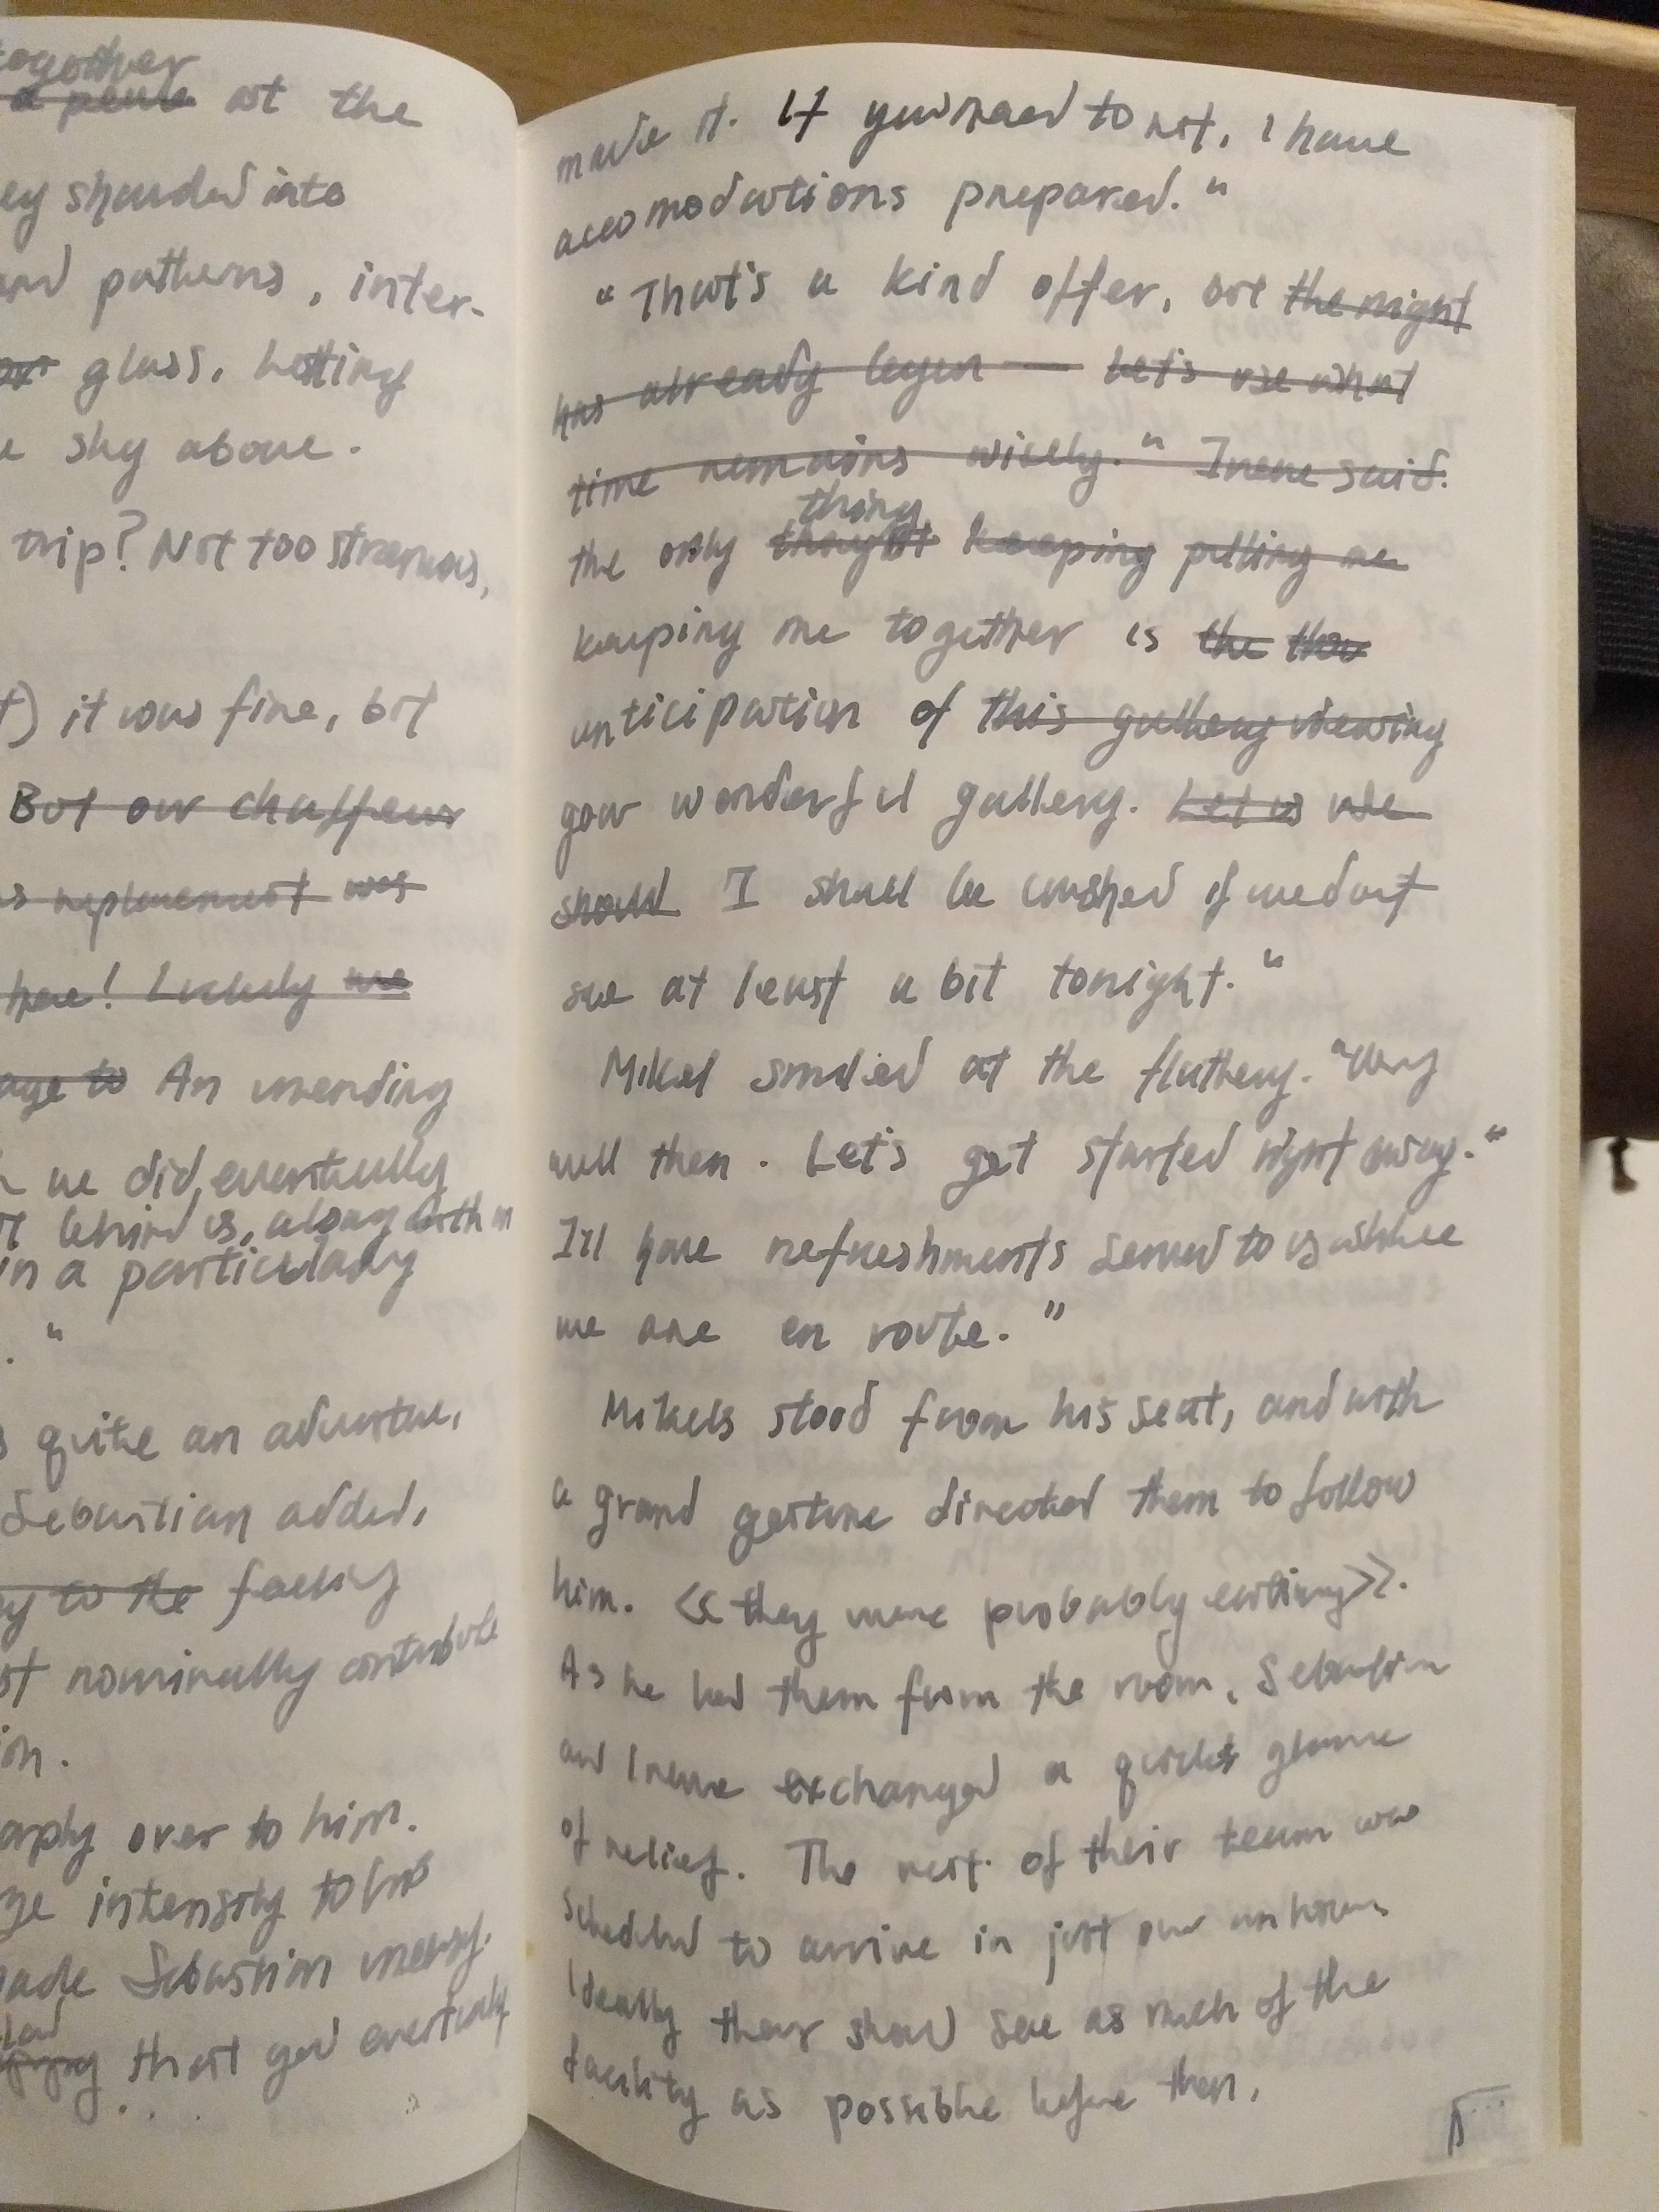 together
a penle at the
ey sharded into
and patterns, inter-
glass, letting
e sky above.
trip? Not too strenuous,
t) it was fine, but
But our chauffeur
s replacement was
here! Luckily we
age to An unending
we did, eventually
behind us, along with
in a particularly
."
s quite an adventure,
Sebastian added,
ng to the facility
st nominally contribute
ion.
arply over to him.
ze intensity to
made Sebastian uneasy.
that you eventually
made it. If you need to rest, I have
accomodations prepared."
"That's a kind offer, but the night
has already begun — Let's use what
time remains wisely." Irene said.
thing
the only thought keeping pulling me
keeping me together is the thou
anticipation of this gallery viewing
your wonderful gallery. Let us use
should I shall be crushed if we don't
see at least a bit tonight."
Mikel smiled at the flattery. "Very
well then. Let's get started right away."
I'll have refreshments served to us while
we are en route."
Mikels stood from his seat, and with
a grand gesture directed them to follow
him. << they were probably eating>>.
As he led them from the room, Sebastian
and Irene exchanged a quick glance
of relief. The rest of their team was
scheduled to arrive in just over an hour.
Ideally they should see as much of the
facility as possible before then.